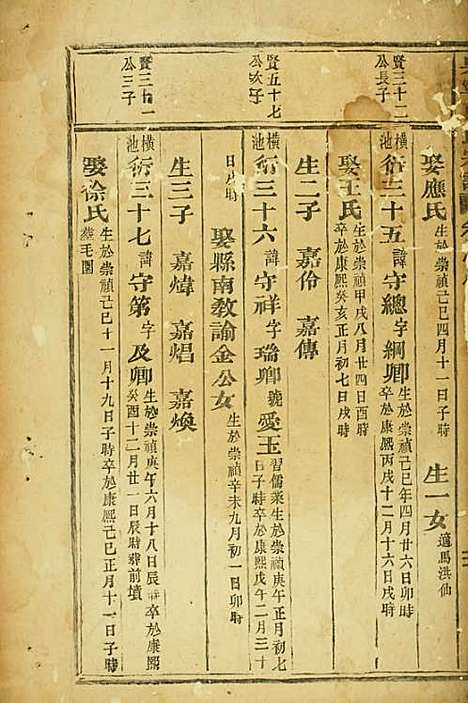 賢三十二
公長子
娶應氏 生於崇禎己巳四月十一日子時
生一女 適馬洪仙
橫池
衍三十五 諱守總字綱卿 生於崇禎己巳年四月廿六日卯時
卒於康熙丙戌十二月十六日戌時
娶王氏 生於崇禎甲戌八月廿四日酉時
卒於康熙癸亥正月初七日戌時
生二子 嘉伶 嘉傳
賢五十七
公次子
橫池
衍三十六 諱守祥字瑞卿號愛玉 習儒業生於崇禎庚午正月初七
日子時卒於康熙戊午二月三十
日戌時
娶縣南教諭金公女 生於崇禎辛未九月初一日卯時
生三子 嘉煒 嘉焻 嘉煥
賢三十一
公三子
橫池
衍三十七 諱守第字及卿 生於崇禎庚午六月十八日辰時卒於康熙
癸酉十二月廿一日辰時葬前墳
娶徐氏 生於崇禎己巳十一月十九日子時卒於康熙己巳正月十一日子時
葬毛園